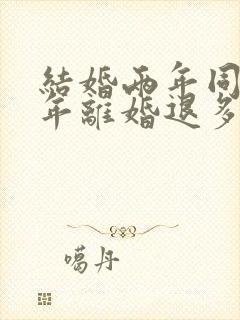 結婚兩年同
年離婚退多
噶丹